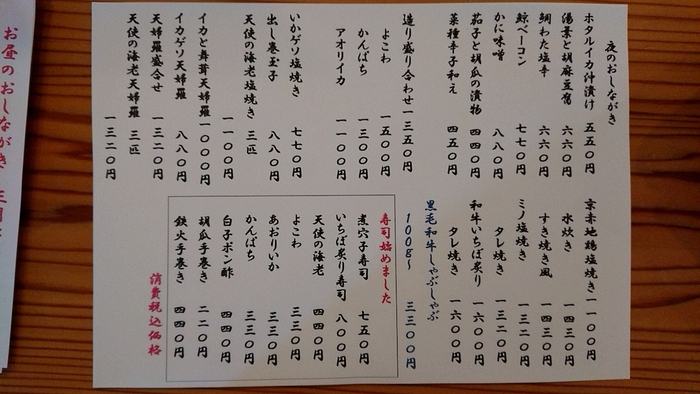 夜のおしながき
ホタルイカ沖漬け 五五〇円
湯葉と胡麻豆腐 六六〇円
鯛わた塩辛 六六〇円
鯨ベーコン 七七〇円
かに味噌 八八〇円
茄子と胡瓜の漬物 四四〇円
菜種辛子和え 四五〇円
造り盛り合わせ 一三五〇円
よこわ 一五〇〇円
かんぱち 一三〇〇円
アオリイカ 一一〇〇円
いかゲソ塩焼き 七七〇円
出し巻玉子 八八〇円
天使の海老塩焼き 三匹
一一〇〇円
イカと舞茸天婦羅 一〇〇〇円
イカゲソ天婦羅 八八〇円
天婦羅盛合せ 一三二〇円
天使の海老天婦羅 三匹
一三二〇円
京赤地鶏塩焼き 一一〇〇円
水炊き 一四三〇円
すき焼き風 一四三〇円
ミノ塩焼き 一三二〇円
タレ焼き 一三二〇円
和牛いちぼ炙り 一六〇〇円
タレ焼き 一六〇〇円
黒毛和牛しゃぶしゃぶ
100g〜 三三〇〇円
寿司始めました
煮穴子寿司 七五〇円
いちぼ炙り寿司 八〇〇円
天使の海老 四四〇円
よこわ 三三〇円
あおりいか 三三〇円
かんぱち 三三〇円
白子ポン酢 四四〇円
胡瓜手巻き 二二〇円
鉄火手巻き 四四〇円
消費税込価格
お昼のおしながき 三月